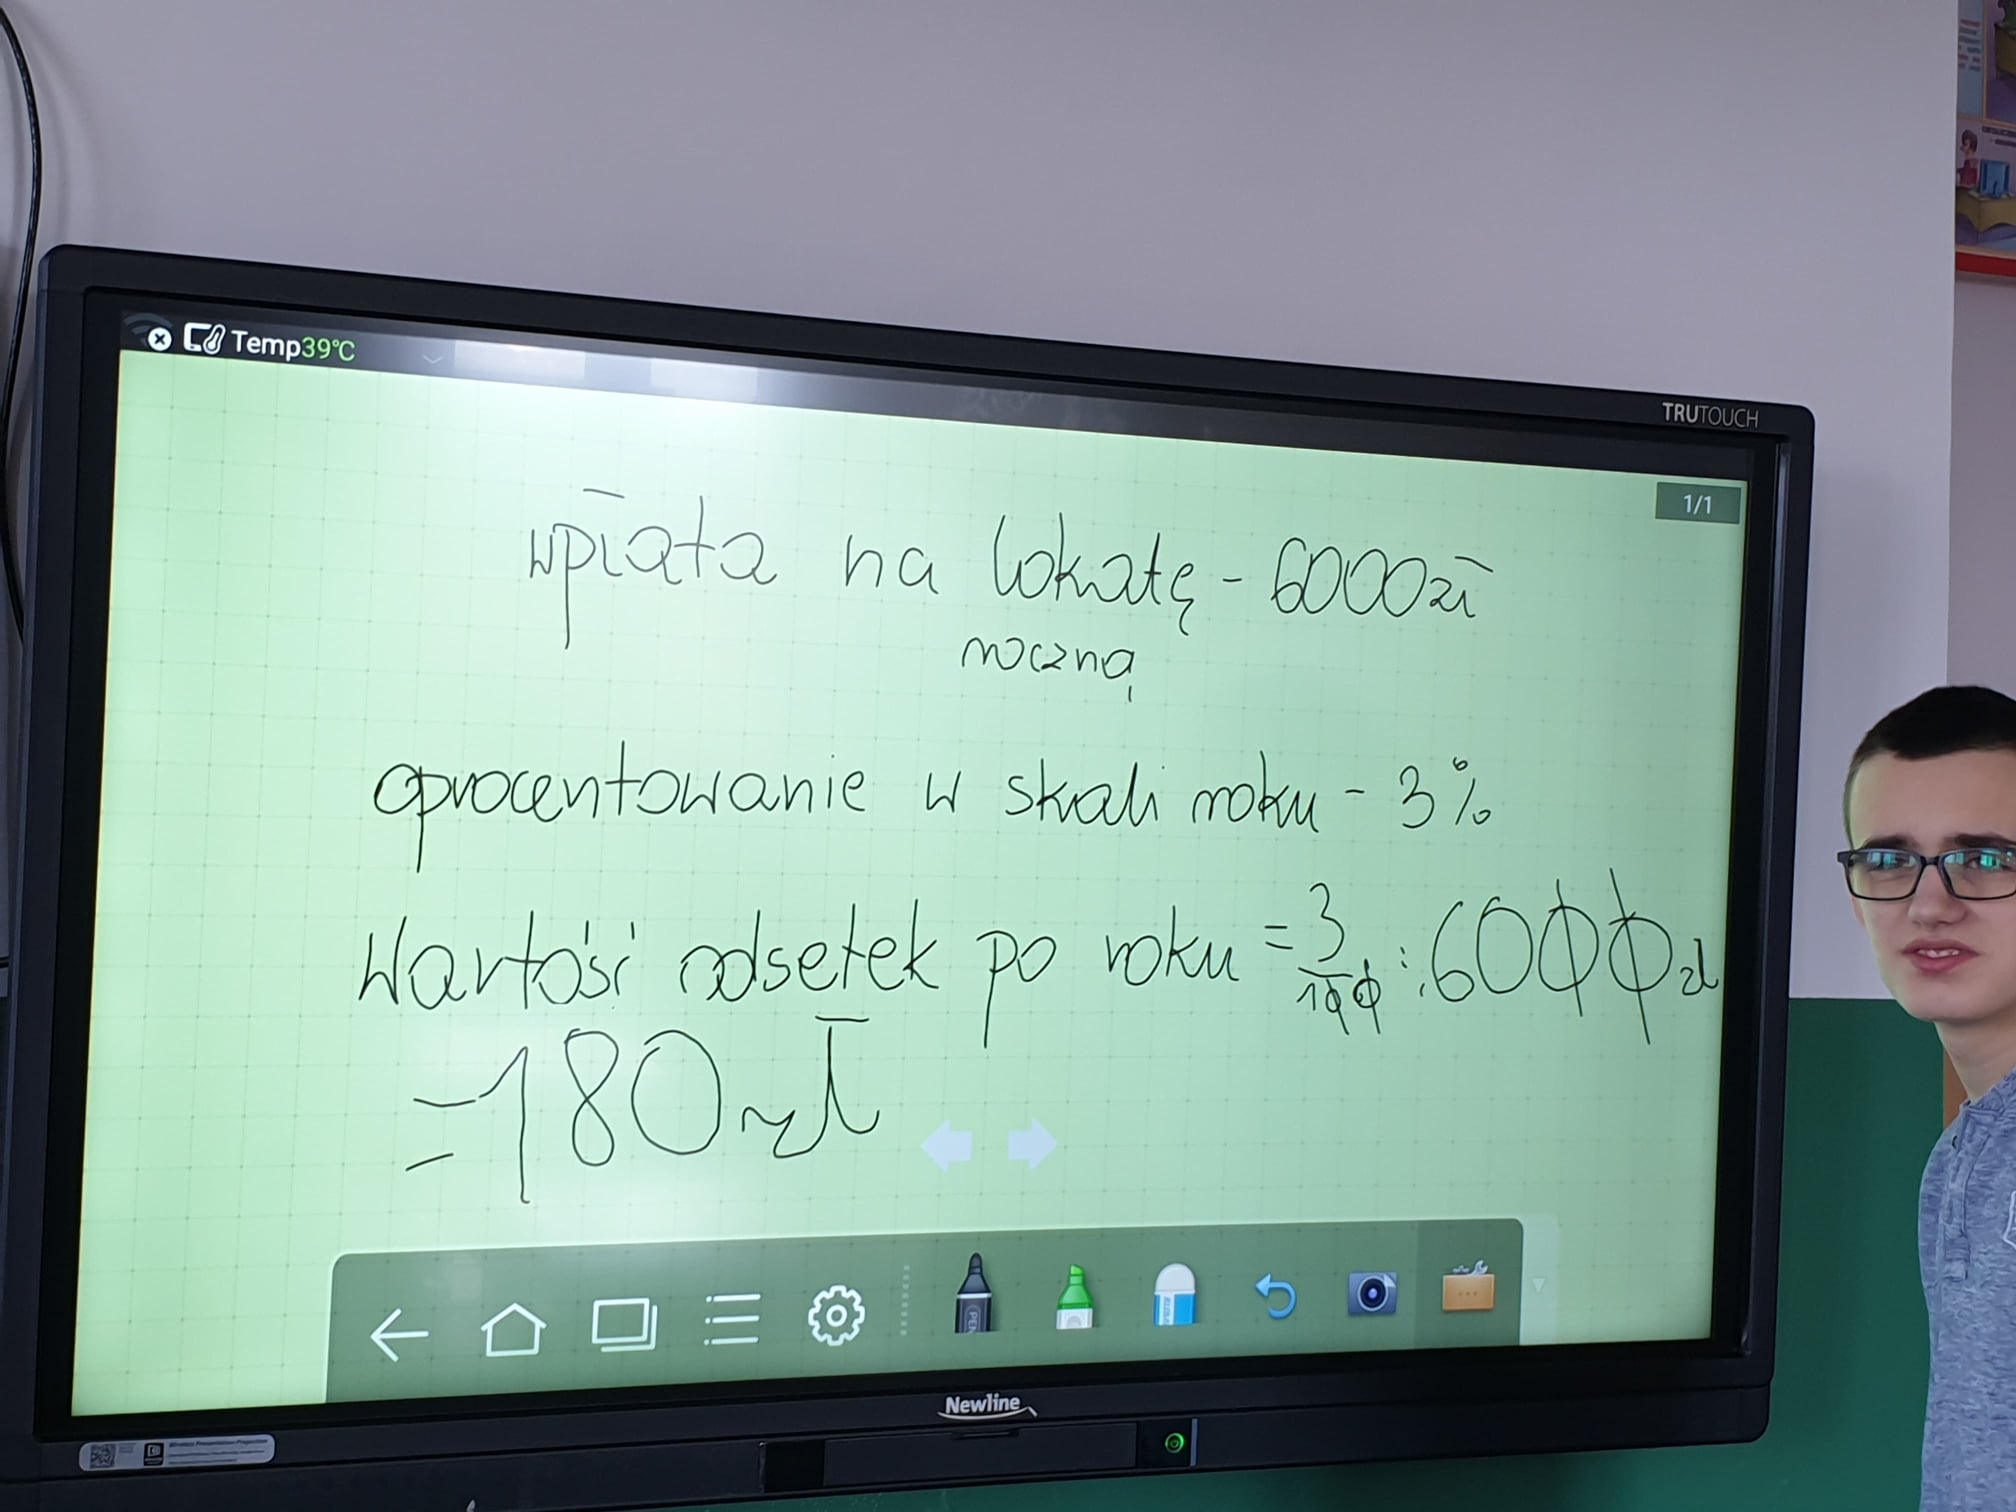 Temp39°C
TRUTOUCH
1/1
wpłata na lokatę - 6000zł
roczną
oprocentowanie w skali roku - 3%
Wartość odsetek po roku = 3/100 : 6000zł
= 180 zł
PEN
Newline